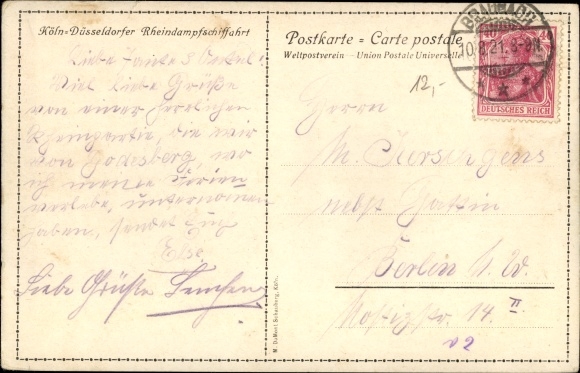 Köln=Düsseldorfer Rheindampfschiffahrt
Liebe Tante & Onkel!
Viel liebe Grüße
von einer herrlichen
Rheinpartie, die wir
von Godesberg, wo
ich meine Ferien
verlebe, unternommen
haben, sendet Euch
Else
Liebe Grüße
M. DuMont Schauberg, Köln.
Postkarte = Carte postale
Weltpostverein — Union Postale Universelle
12,-
BRAUBACH
10.8.21. 8-9N.
DEUTSCHES REICH
Herrn
M.
nebst Gattin
Berlin S. W.
14 II